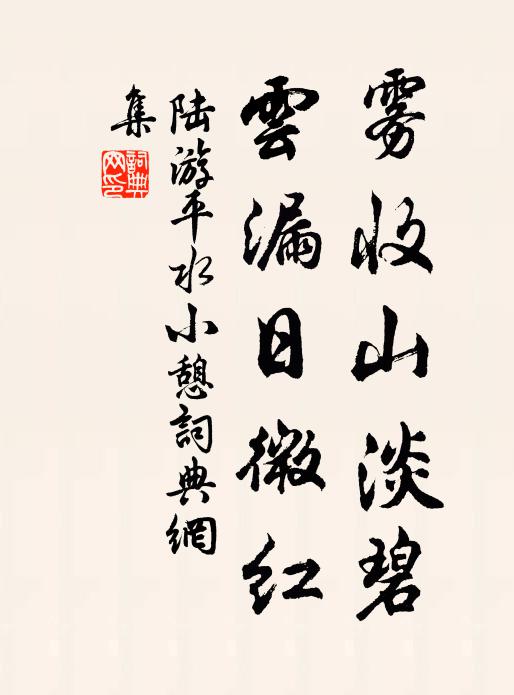 雾收山淡碧
雲漏日微红
陆游平水小憩詞典網
集
詞典
网印